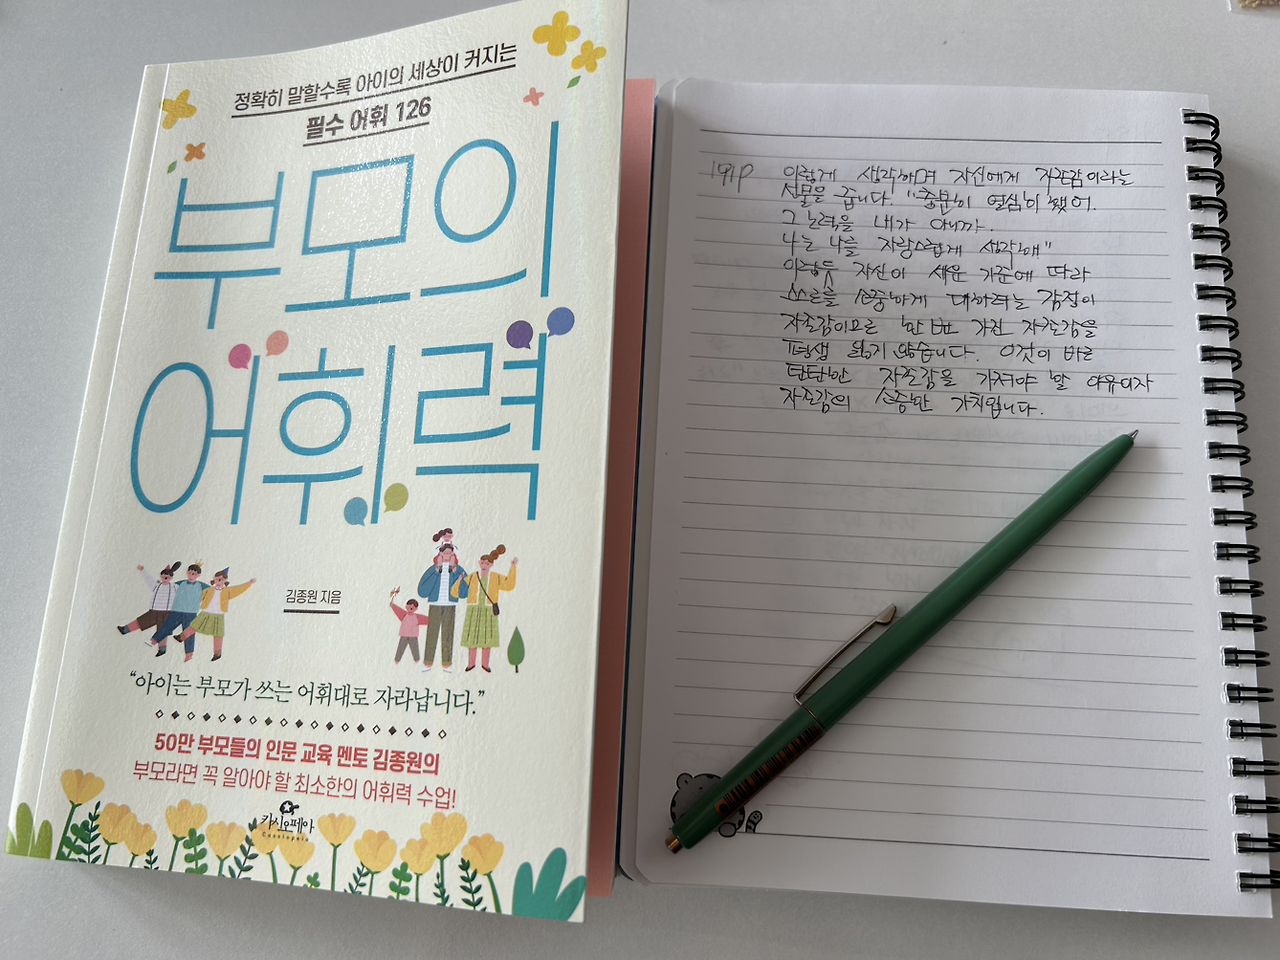 정확히 말할수록 아이의 세상이 커지는
필수 어휘 126
부모의
어휘력
김종원 지음
“아이는 부모가 쓰는 어휘대로 자라납니다.”
50만 부모들의 인문 교육 멘토 김종원의
부모라면 꼭 알아야 할 최소한의 어휘력 수업!
카시오페아
Cassiopeia
191P 이렇게 생각하며 자신에게 자존감이라는
선물을 줍니다. "충분히 열심히 했어.
그 노력을 내가 아니까.
나는 나를 자랑스럽게 생각해"
이렇듯 자신이 세운 기준에 따라
스스로를 소중하게 대하려는 감정이
자존감이므로 한 번 가진 자존감을
평생 잃지 않습니다. 이것이 바로
탄탄한 자존감을 가져야 할 이유이자
자존감의 소중한 가치입니다.